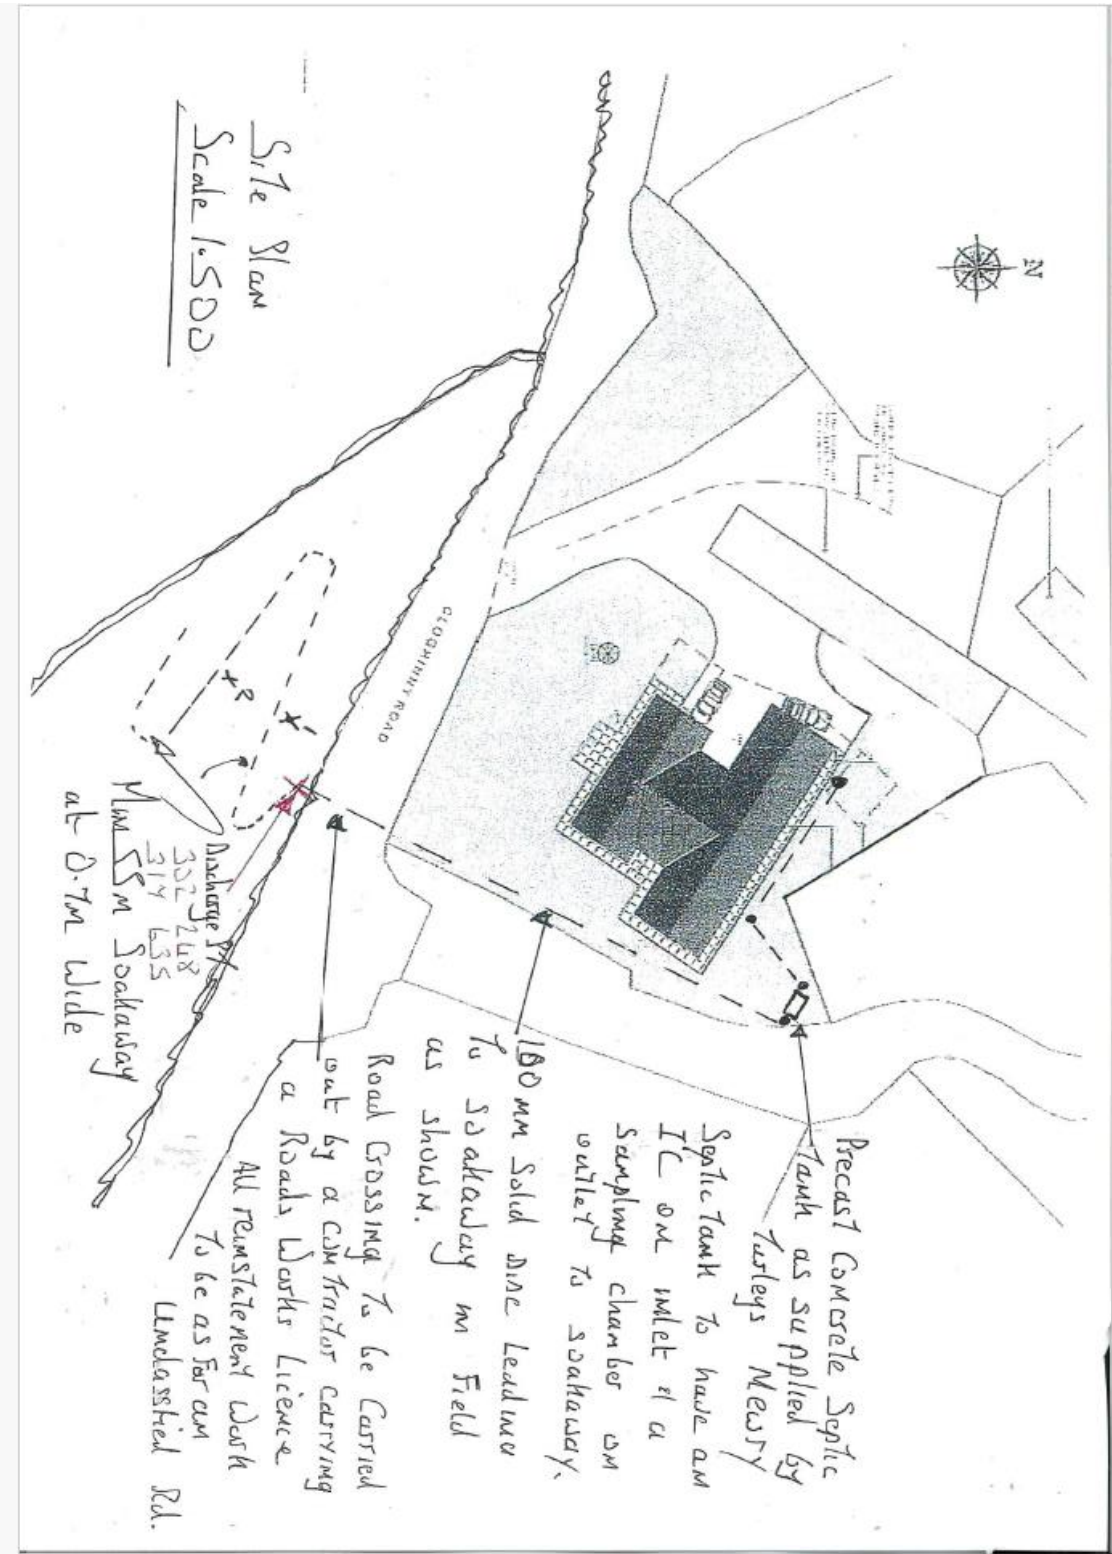 N
Site Plan
Scale 1:500
CLOGHINNY ROAD
Precast Concrete Septic
Tank as supplied by
Turleys Newry
Septic Tank to have an
IC on inlet & a
Sampling chamber on
outlet to soakaway.
100mm Solid Pipe Leading
To Soakaway in Field
as shown.
Road Crossing To be Carried
out by a contractor carrying
a Roads Works Licence
All reinstatement work
To be as For an
Unclassified Rd.
Discharge Pt
Min 55m Soakaway
at 0.7m Wide